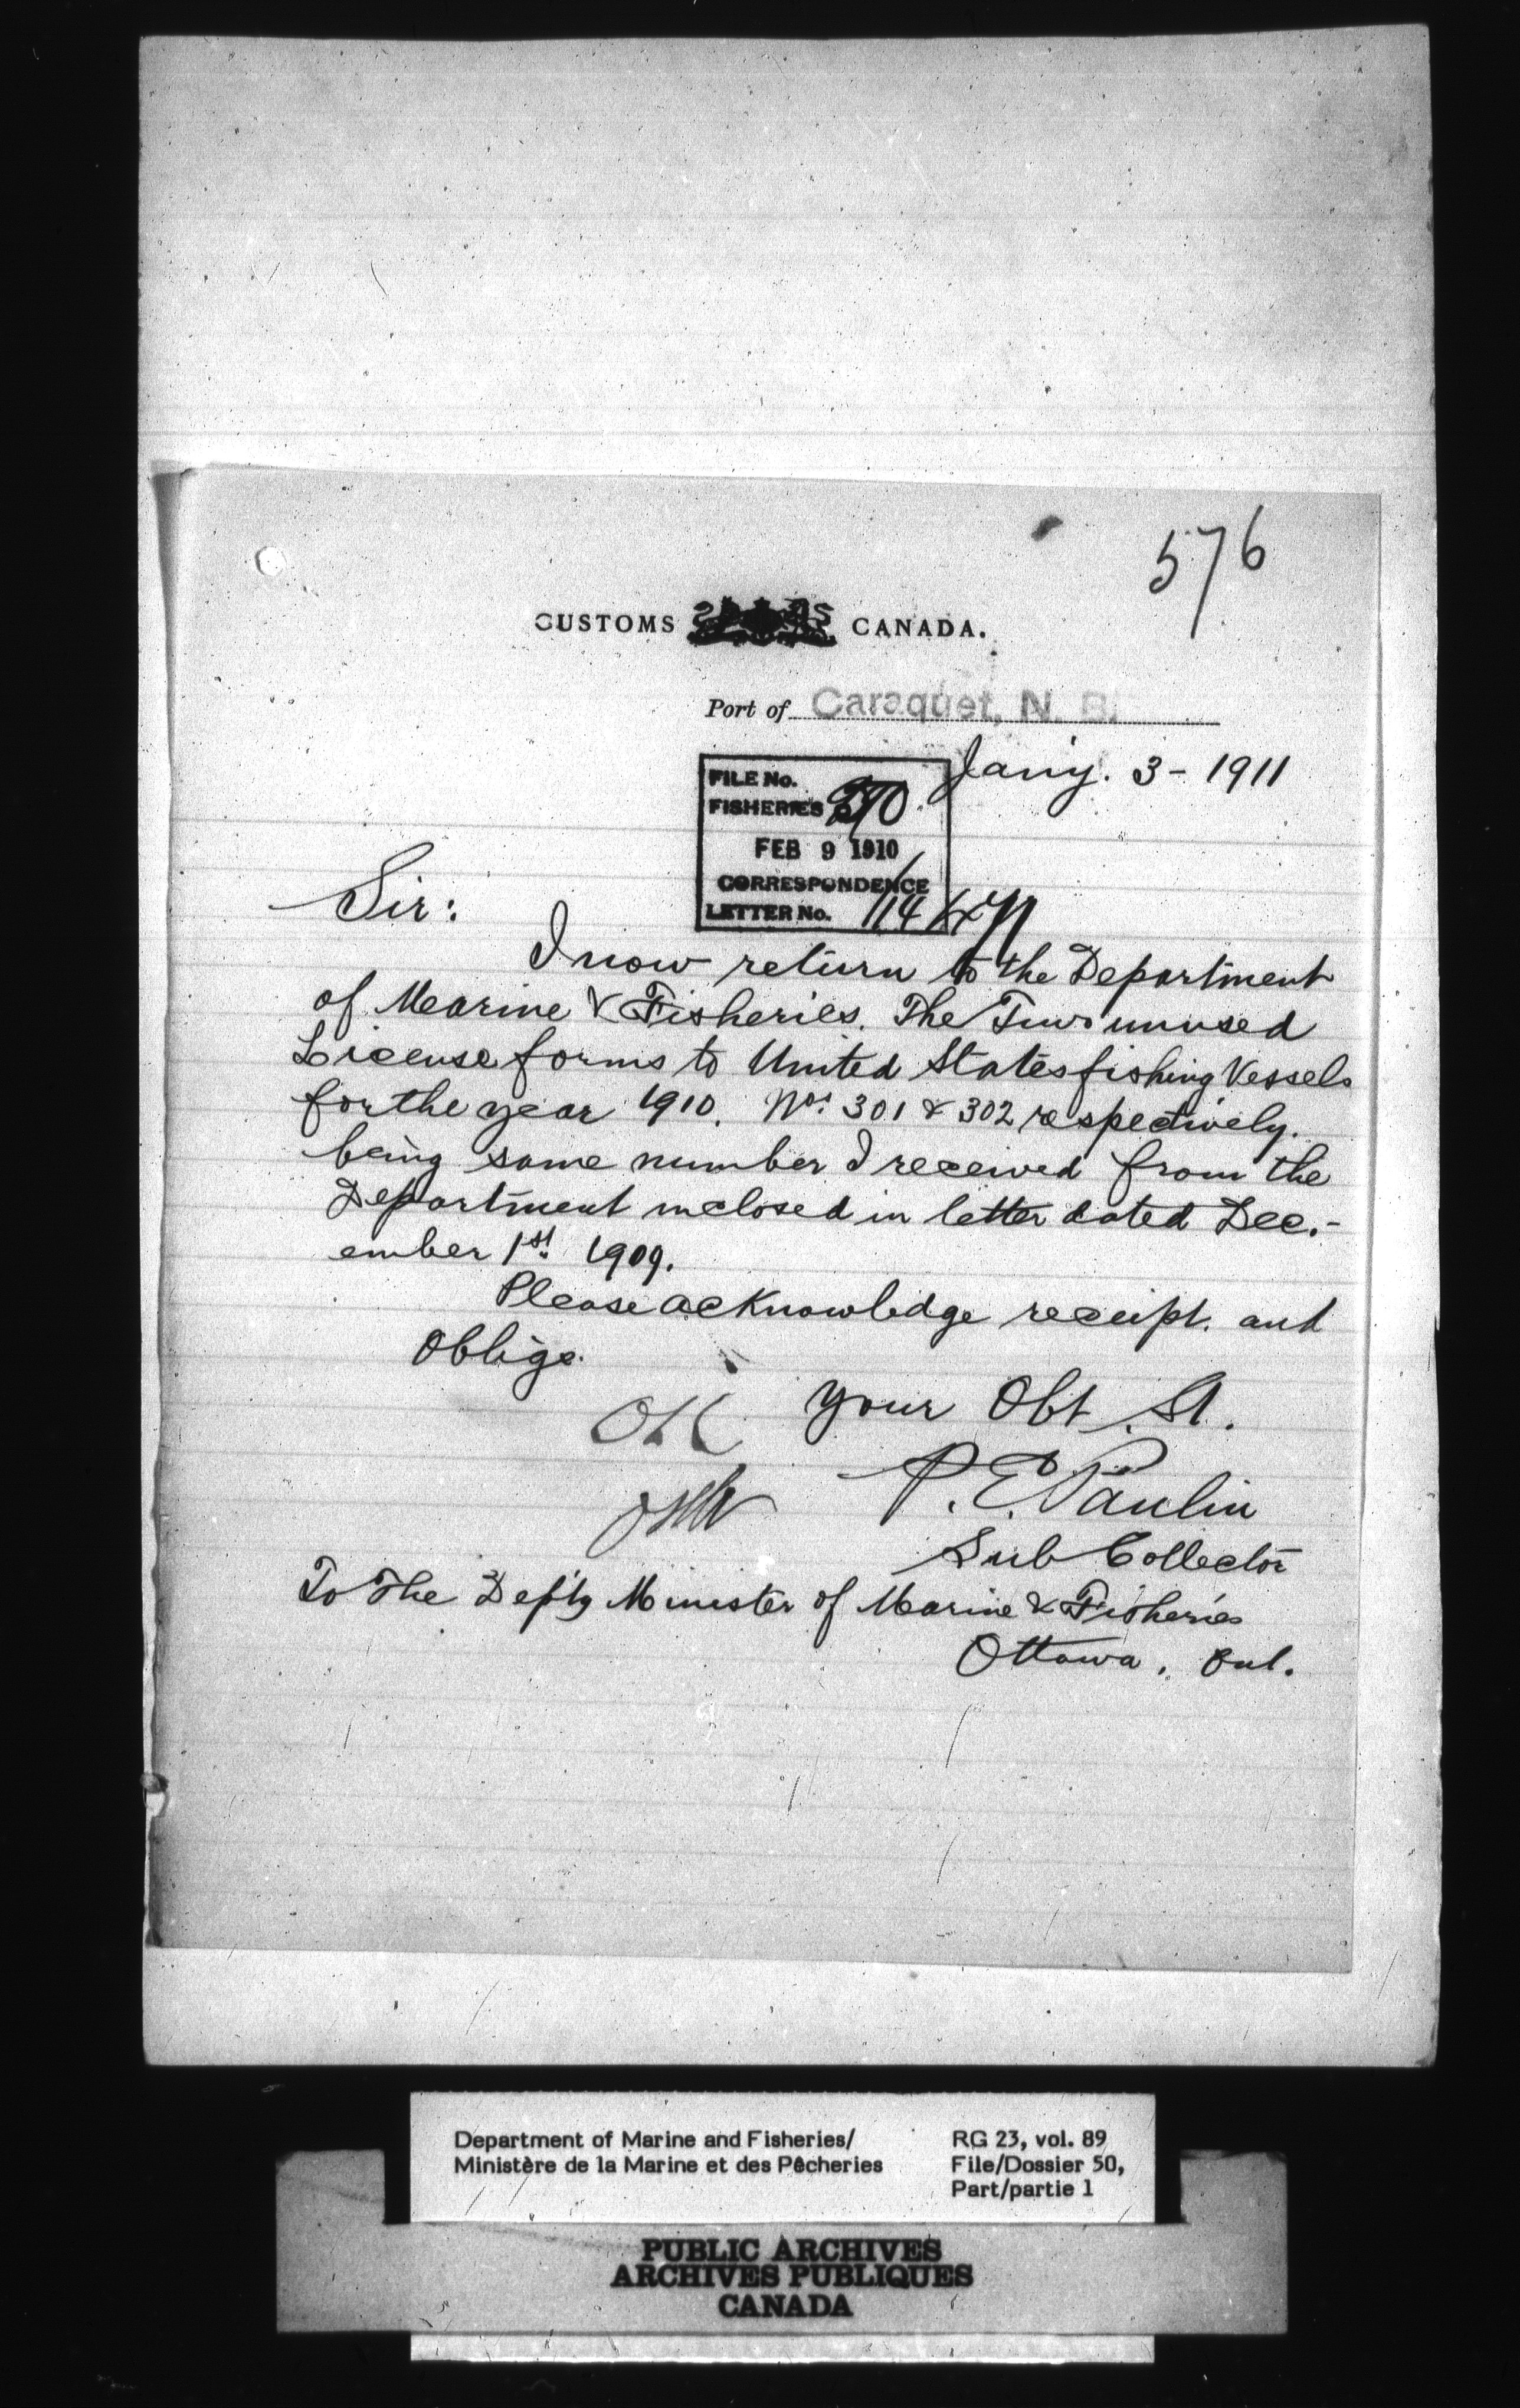 576
CUSTOMS CANADA.
Port of Caraquet, N. B.
Jany. 3 - 1911
FILE No.
FISHERIES
FEB 9 1910
CORRESPONDENCE
LETTER No.
Sir:
I now return to the Department
of Marine & Fisheries. The Two unused
License forms to United States fishing Vessels
for the year 1910. Nos. 301 & 302 respectively.
being same number I received from the
Department inclosed in letter dated Dec.-
ember 1st. 1909.
Please acknowledge receipt. and
Oblige.
your Obt. St.
OK
P. E. Paulin
Sub Collector
To The Dep'ty Minister of Marine & Fisheries
Ottawa, Ont.
Department of Marine and Fisheries/ RG 23, vol. 89
Ministère de la Marine et des Pêcheries File/Dossier 50,
Part/partie 1
PUBLIC ARCHIVES
ARCHIVES PUBLIQUES
CANADA